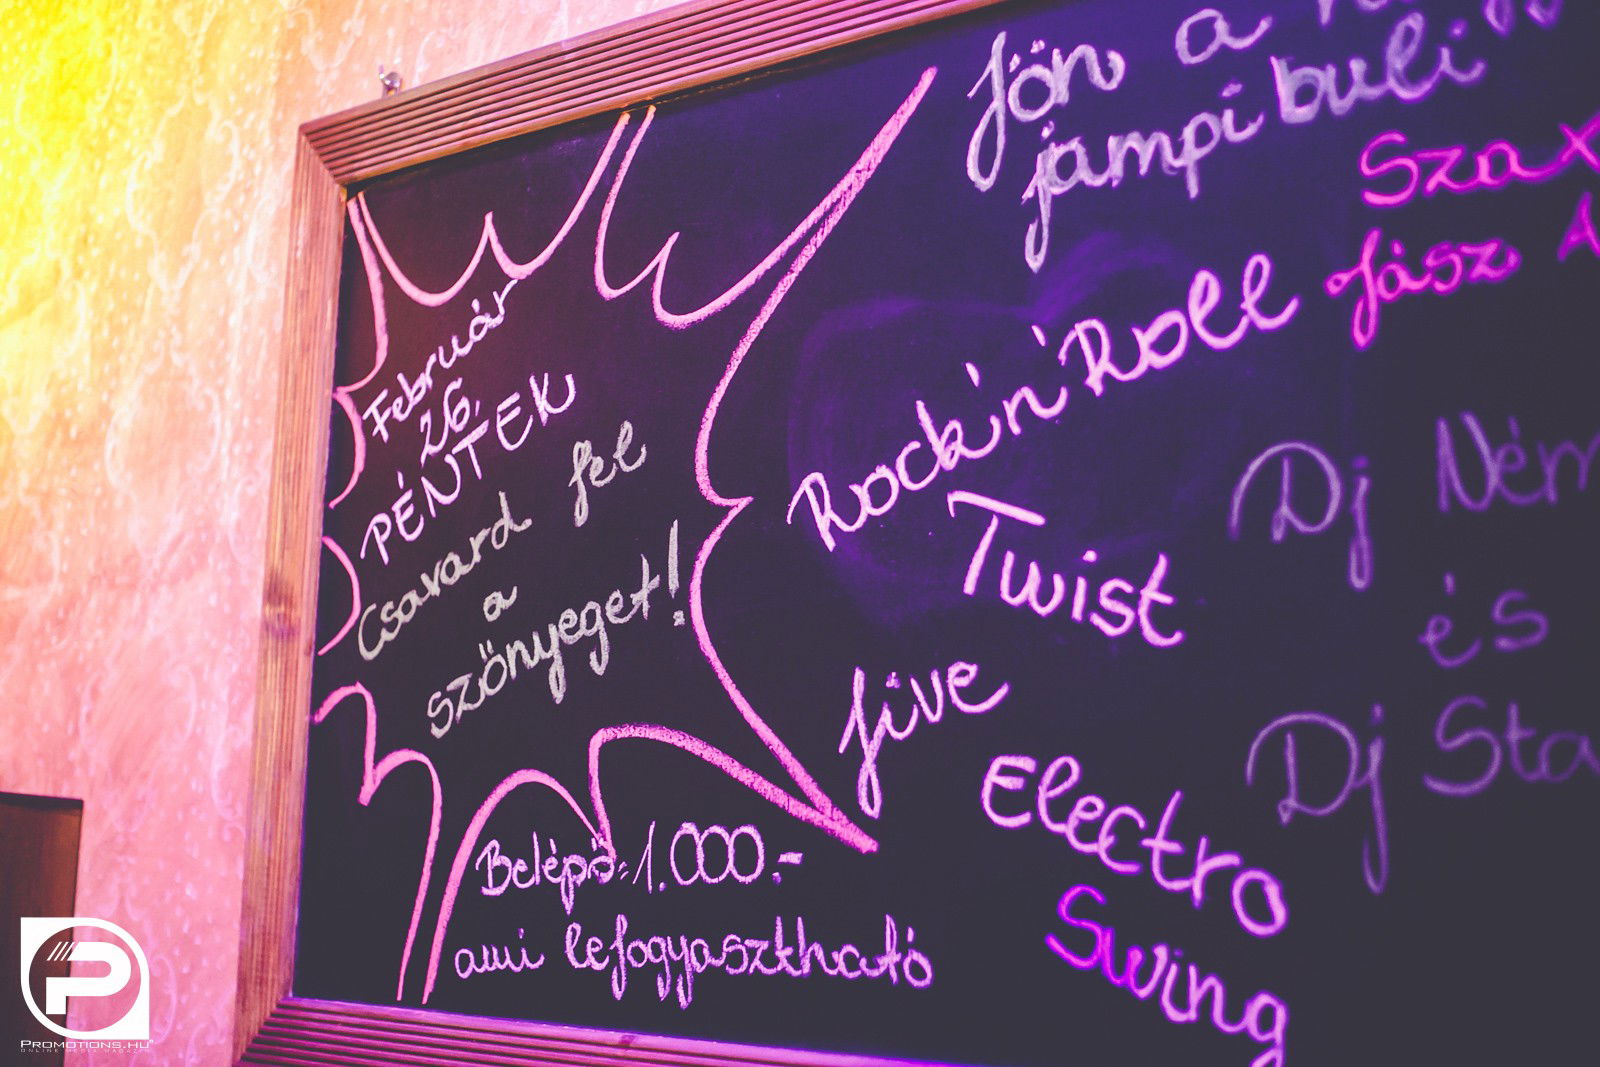 Február
26.
PÉNTEK
Csavard fel
a
szőnyeget!
Belépő: 1.000.-
ami lefogyasztható
Jön a
jampi buli
Rock'n'Roll
Twist
Jive
Electro
Swing
Szax
Jász
Dj
és
Dj
PROMOTIONS.HU
ONLINE MEDIA MAGAZIN